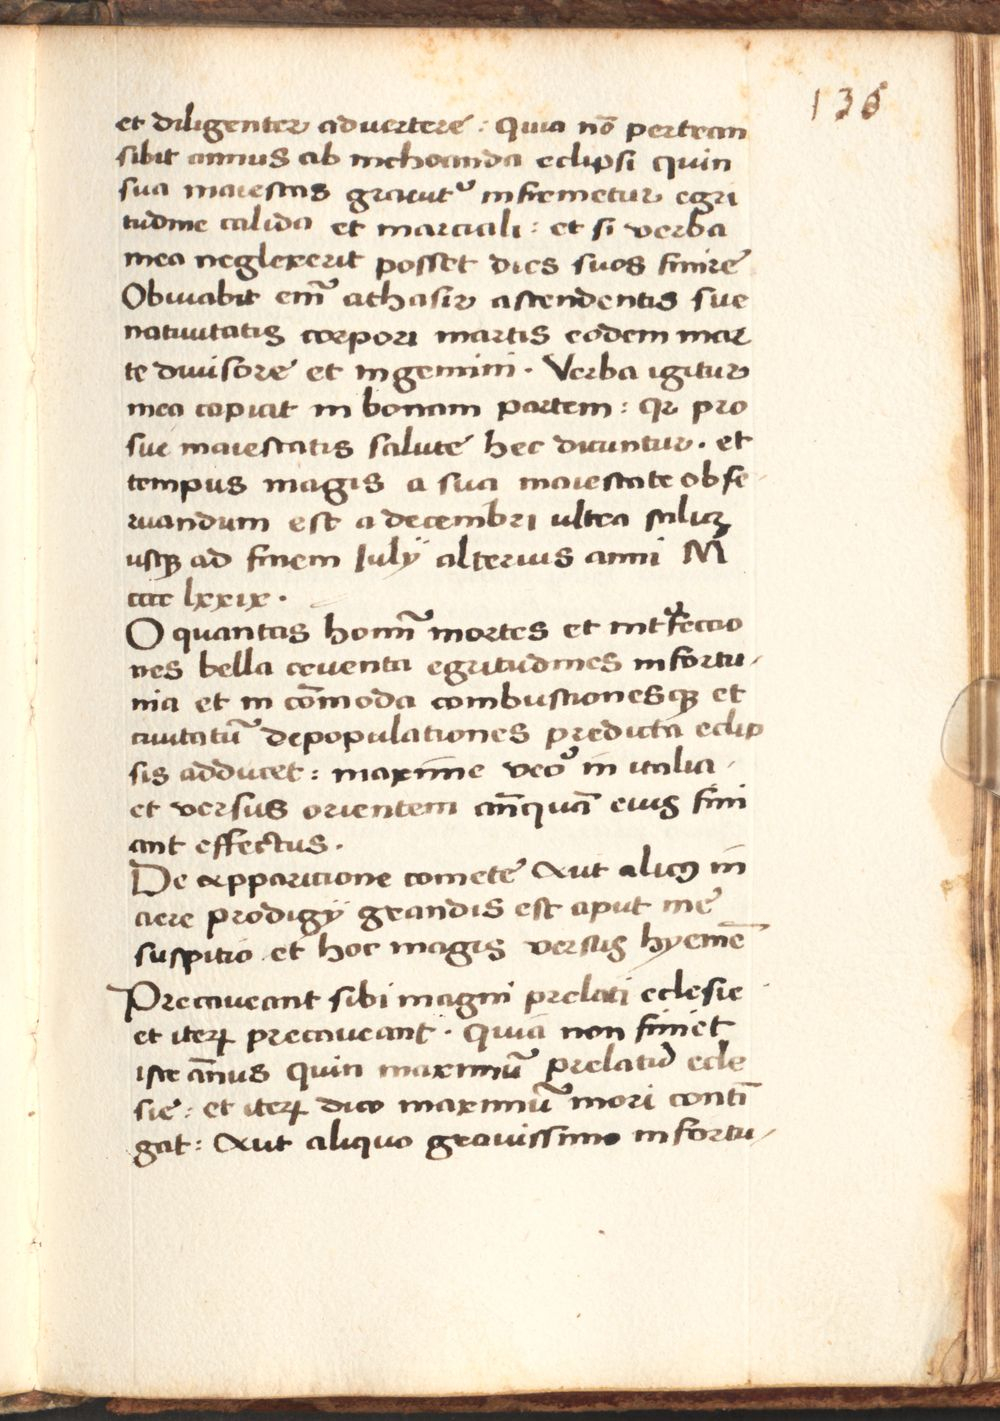 136
et diligenter aduertere : Quia nō pertran
sibit annus ab inchoanda eclipsi quin
sua maiestas grauit᷑ infremetur egri
tudine calida et marciali : et si verba
mea neglexerit posset dies suos finire
Obuiabit em̄ athasir ascendentis sue
natiuitatis corpori martis eodem mar
te diuisore et in gemini . Verba igitur
mea capiat in bonam partem : qr pro
sue maiestatis salute hec dicuntur . et
tempus magis a sua maiestate obse-
ruandum est a decembri ultra scilicꝫ
usqꝫ ad finem Iulÿ alterius anni M
cccc lxxix .
O quantas homī mortes et int᷑fectio
nes bella ceuenta egritudines infortu-
nia et in cōmoda combustionesqꝫ et
ciuitatū depopulationes predicta eclip
sis adducet : maxime veo᷑ in italia
et versus orientem an̄quā eius fini
ant effectus .
De apparicione comete Aut alicꝰ in
aere prodigÿ grandis est aput me
suspitio et hoc magis versus hyemē
Precaueant sibi magni prelati eclesie
et iteꝝ precaueant . Quia non finiet
iste an̄us Quin maximū prelatū ecle
sie : et iteꝝ dico maximū mori contī
gat : Aut aliquo grauissimo infortu-